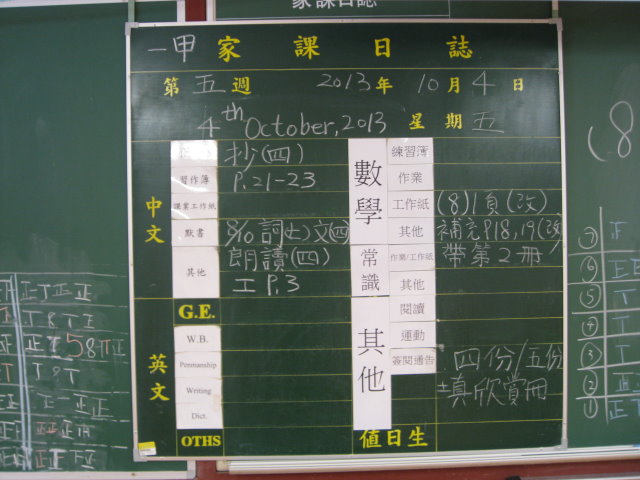 家課日誌
一甲 家課日誌
第五週 2013年10月4日
4th October, 2013 星期五
中文
抄(四)
習作簿 P.21-23
課業工作紙
默書 8/10 詞(七)文(四)
其他 朗讀(四)
工 P.3
英文
G.E.
W.B.
Penmanship
Writing
Dict.
OTHS
數學
練習簿
作業
工作紙 (8)1頁(改)
其他 補充P18,19(改)
常識
作業/工作紙 帶第2冊
其他
其他
閱讀
運動
簽閱通告 四份/五份
填欣賞冊
值日生
(8
⑦ 正
⑥
⑤
④
③
②
①